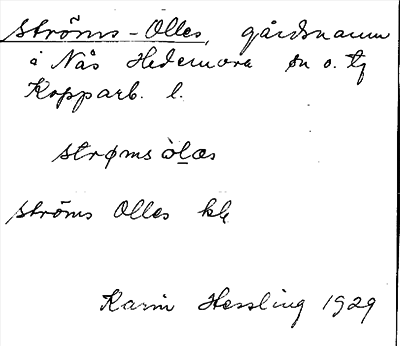 Ströms-Olles, gårdsnamn
å Nås Hedemora sn o. tg
Kopparb. l.
strøms òlæs
Ströms Olles
Karin Hessling 1929